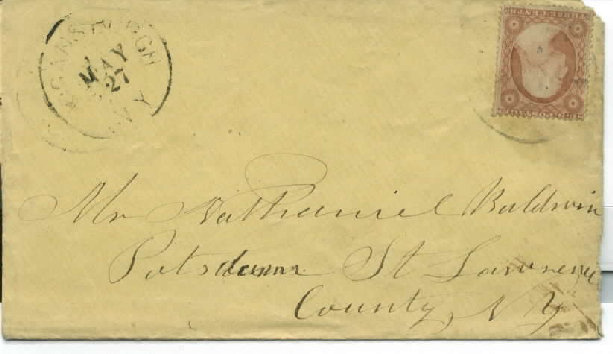 MAY
27
N Y
Mr Nathaniel Baldwin
Potsdam St Lawrence
County, N.Y.